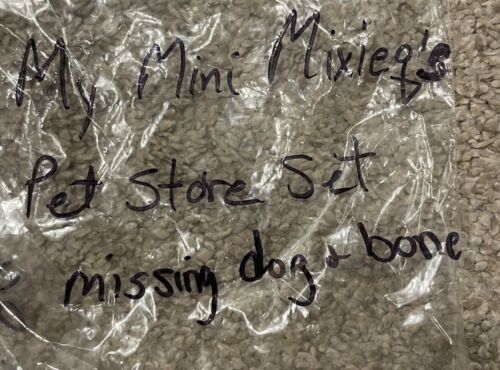 My Mini Mixieq's
Pet Store Set
missing dog + bone